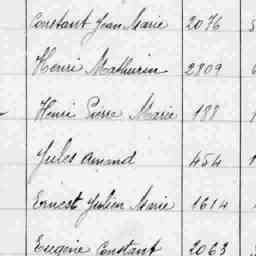 Constant Jean Marie 2076
Henri Mathurin 2809
Henri Pierre Marie 188
Jules Amand 454
Ernest Julien Marie 1614
Eugène Constant 2063